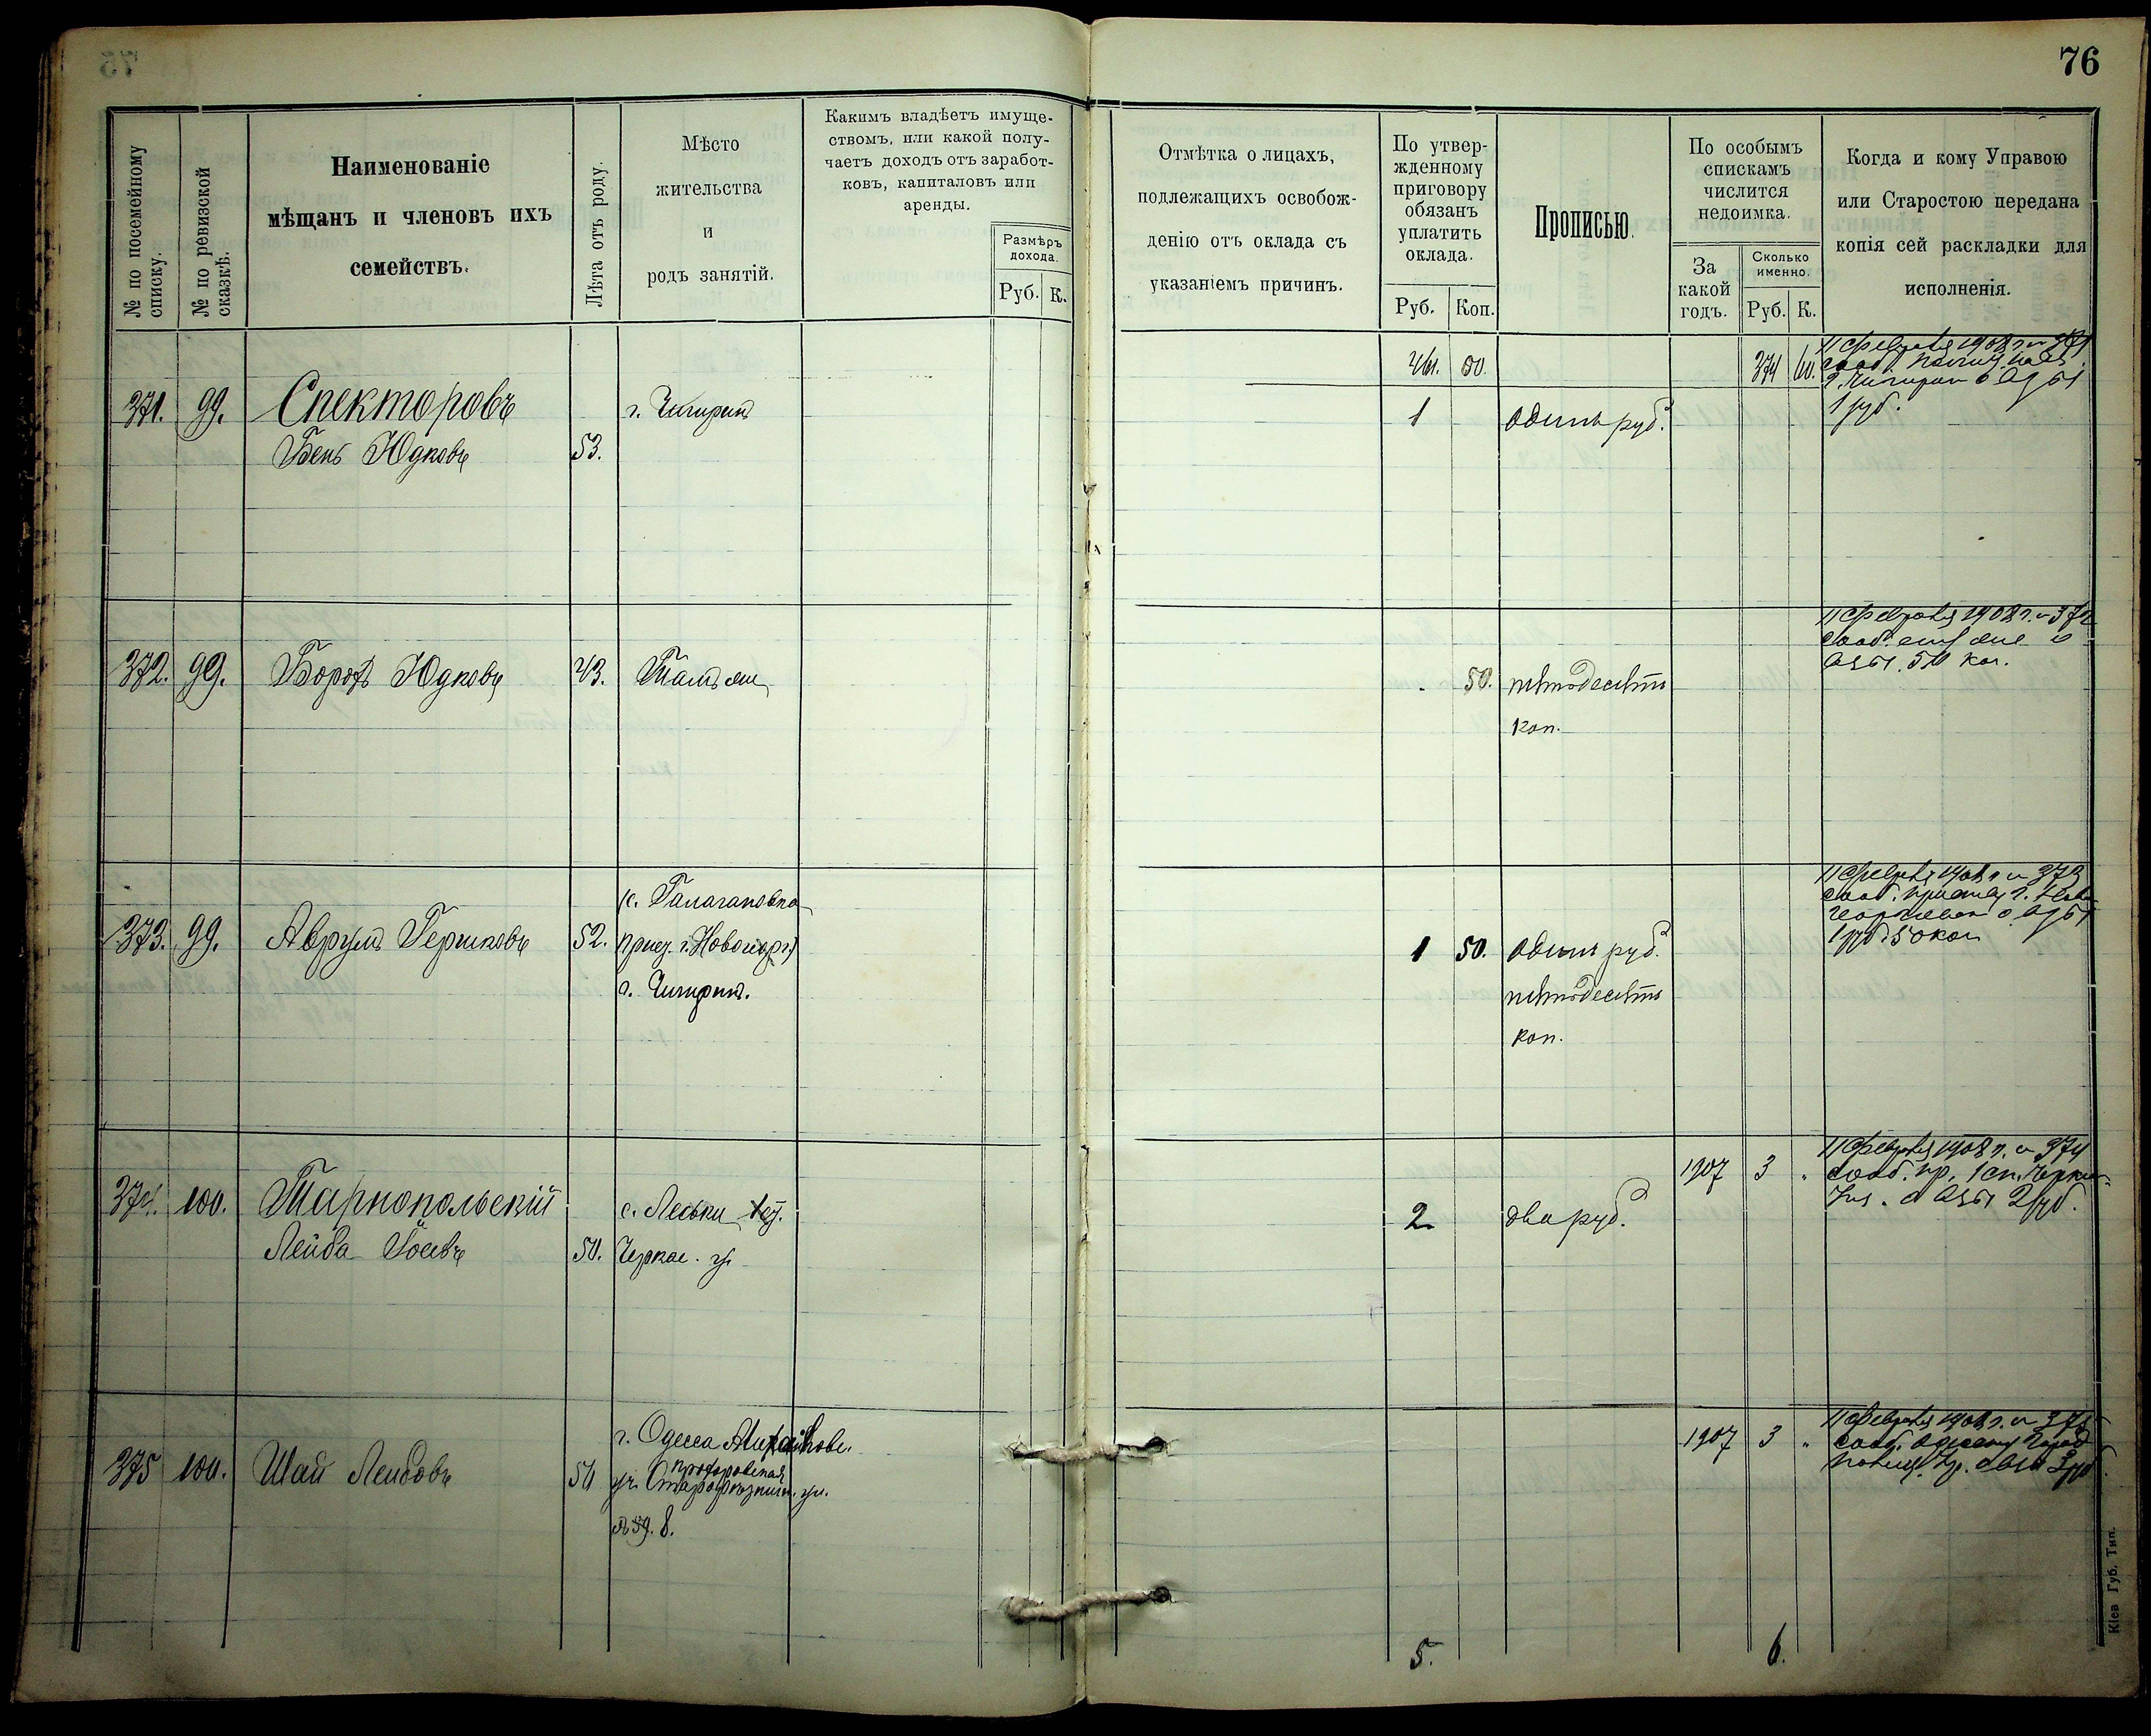 76
№ по посемейному
списку.
№ по ревизской
сказкѣ.
Наименованіе
мѣщанъ и членовъ ихъ
семействъ.
Лѣта отъ роду.
Мѣсто
жительства
и
родъ занятій.
Какимъ владѣетъ имуще-
ствомъ, или какой полу-
чаетъ доходъ отъ заработ-
ковъ, капиталовъ или
аренды.
Размѣръ
дохода.
Руб. К.
Отмѣтка о лицахъ,
подлежащихъ освобож-
денію отъ оклада съ
указаніемъ причинъ.
По утвер-
жденному
приговору
обязанъ
уплатить
оклада.
Руб. Коп.
Прописью.
По особымъ
спискамъ
числится
недоимка.
За
какой
годъ.
Сколько
именно.
Руб. К.
Когда и кому Управою
или Старостою передана
копія сей раскладки для
исполненія.
461. 50.
374 60.
11 февраля 1908 г. № 371
сооб.
г. Чигирин о
1 руб.
371. 99. Спекторовъ г. Чигирин 1 одинъ руб.
Бень Юдковъ 53.
11 февраля 1908 г. № 372
сооб.
50 коп.
372. 99. Борохъ Юдковъ 43. Тамъ же 50. пятьдесятъ
коп.
11 февраля 1908 г. № 373
сооб. приставу г. Ново
1 руб 50 коп
с. Галагановка
373. 99. Аврумъ Гершковъ 52. г. Новогеорг. 1 50. одинъ руб.
г. Чигирин. пятьдесятъ
коп.
1907 3 "
11 февраля 1908 г. № 374
сооб. пр. 1 ст. Черкас.
2 руб.
374. 100. Тарнопольскій с. Леськи 2 два руб.
Лейба Іосевъ 50. Черкас. у.
1907 3 "
11 февраля 1908 г. № 375
сооб. Одесск. Город.
3 руб.
375 100. Шай Лейбовъ г. Одесса Михайлов.
уч. Прохоровская
ул.
8.
5. 6.
Кіев Губ. Тип.